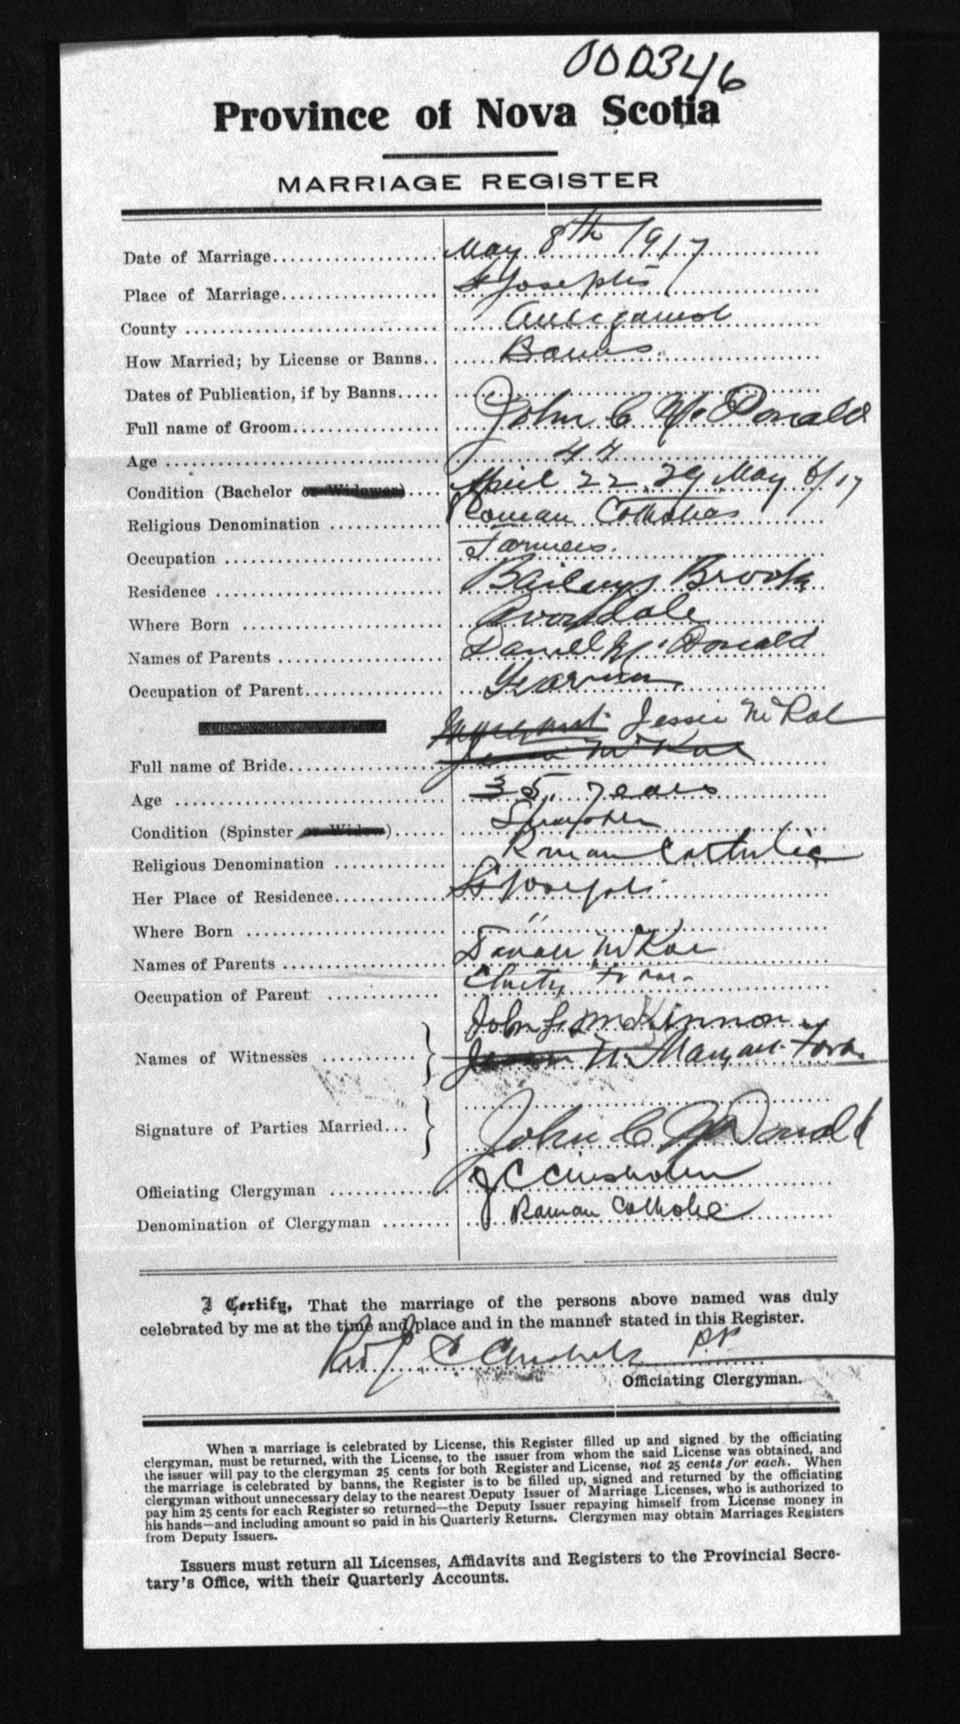 000346
Province of Nova Scotia
MARRIAGE REGISTER
Date of Marriage May 8th 1917
Place of Marriage St Josephs
County Antigonish
How Married; by License or Banns Banns
Dates of Publication, if by Banns
Full name of Groom John C McDonald
Age 44
Condition (Bachelor or Widower) April 22, 29, May 6/17
Religious Denomination Roman Catholic
Occupation Farmer
Residence Baileys Brook
Where Born Avondale
Names of Parents McDonald
Occupation of Parent
Jessie McRae
Full name of Bride
Age 35 years
Condition (Spinster or Widow) Spinster
Religious Denomination Roman Catholic
Her Place of Residence St Josephs
Where Born "
Names of Parents
Occupation of Parent
John McKinnon
Names of Witnesses
Signature of Parties Married John C McDonald
Officiating Clergyman J C Chisholm
Denomination of Clergyman Roman Catholic
I Certify, That the marriage of the persons above named was duly
celebrated by me at the time and place and in the manner stated in this Register.
Rev J C Chisholm PP
Officiating Clergyman.
When a marriage is celebrated by License, this Register filled up and signed by the officiating
clergyman, must be returned, with the License, to the issuer from whom the said License was obtained, and
the issuer will pay to the clergyman 25 cents for both Register and License, not 25 cents for each. When
the marriage is celebrated by banns, the Register is to be filled up, signed and returned by the officiating
clergyman without unnecessary delay to the nearest Deputy Issuer of Marriage Licenses, who is authorized to
pay him 25 cents for each Register so returned—the Deputy Issuer repaying himself from License money in
his hands—and including amount so paid in his Quarterly Returns. Clergymen may obtain Marriages Registers
from Deputy Issuers.
Issuers must return all Licenses, Affidavits and Registers to the Provincial Secre-
tary's Office, with their Quarterly Accounts.